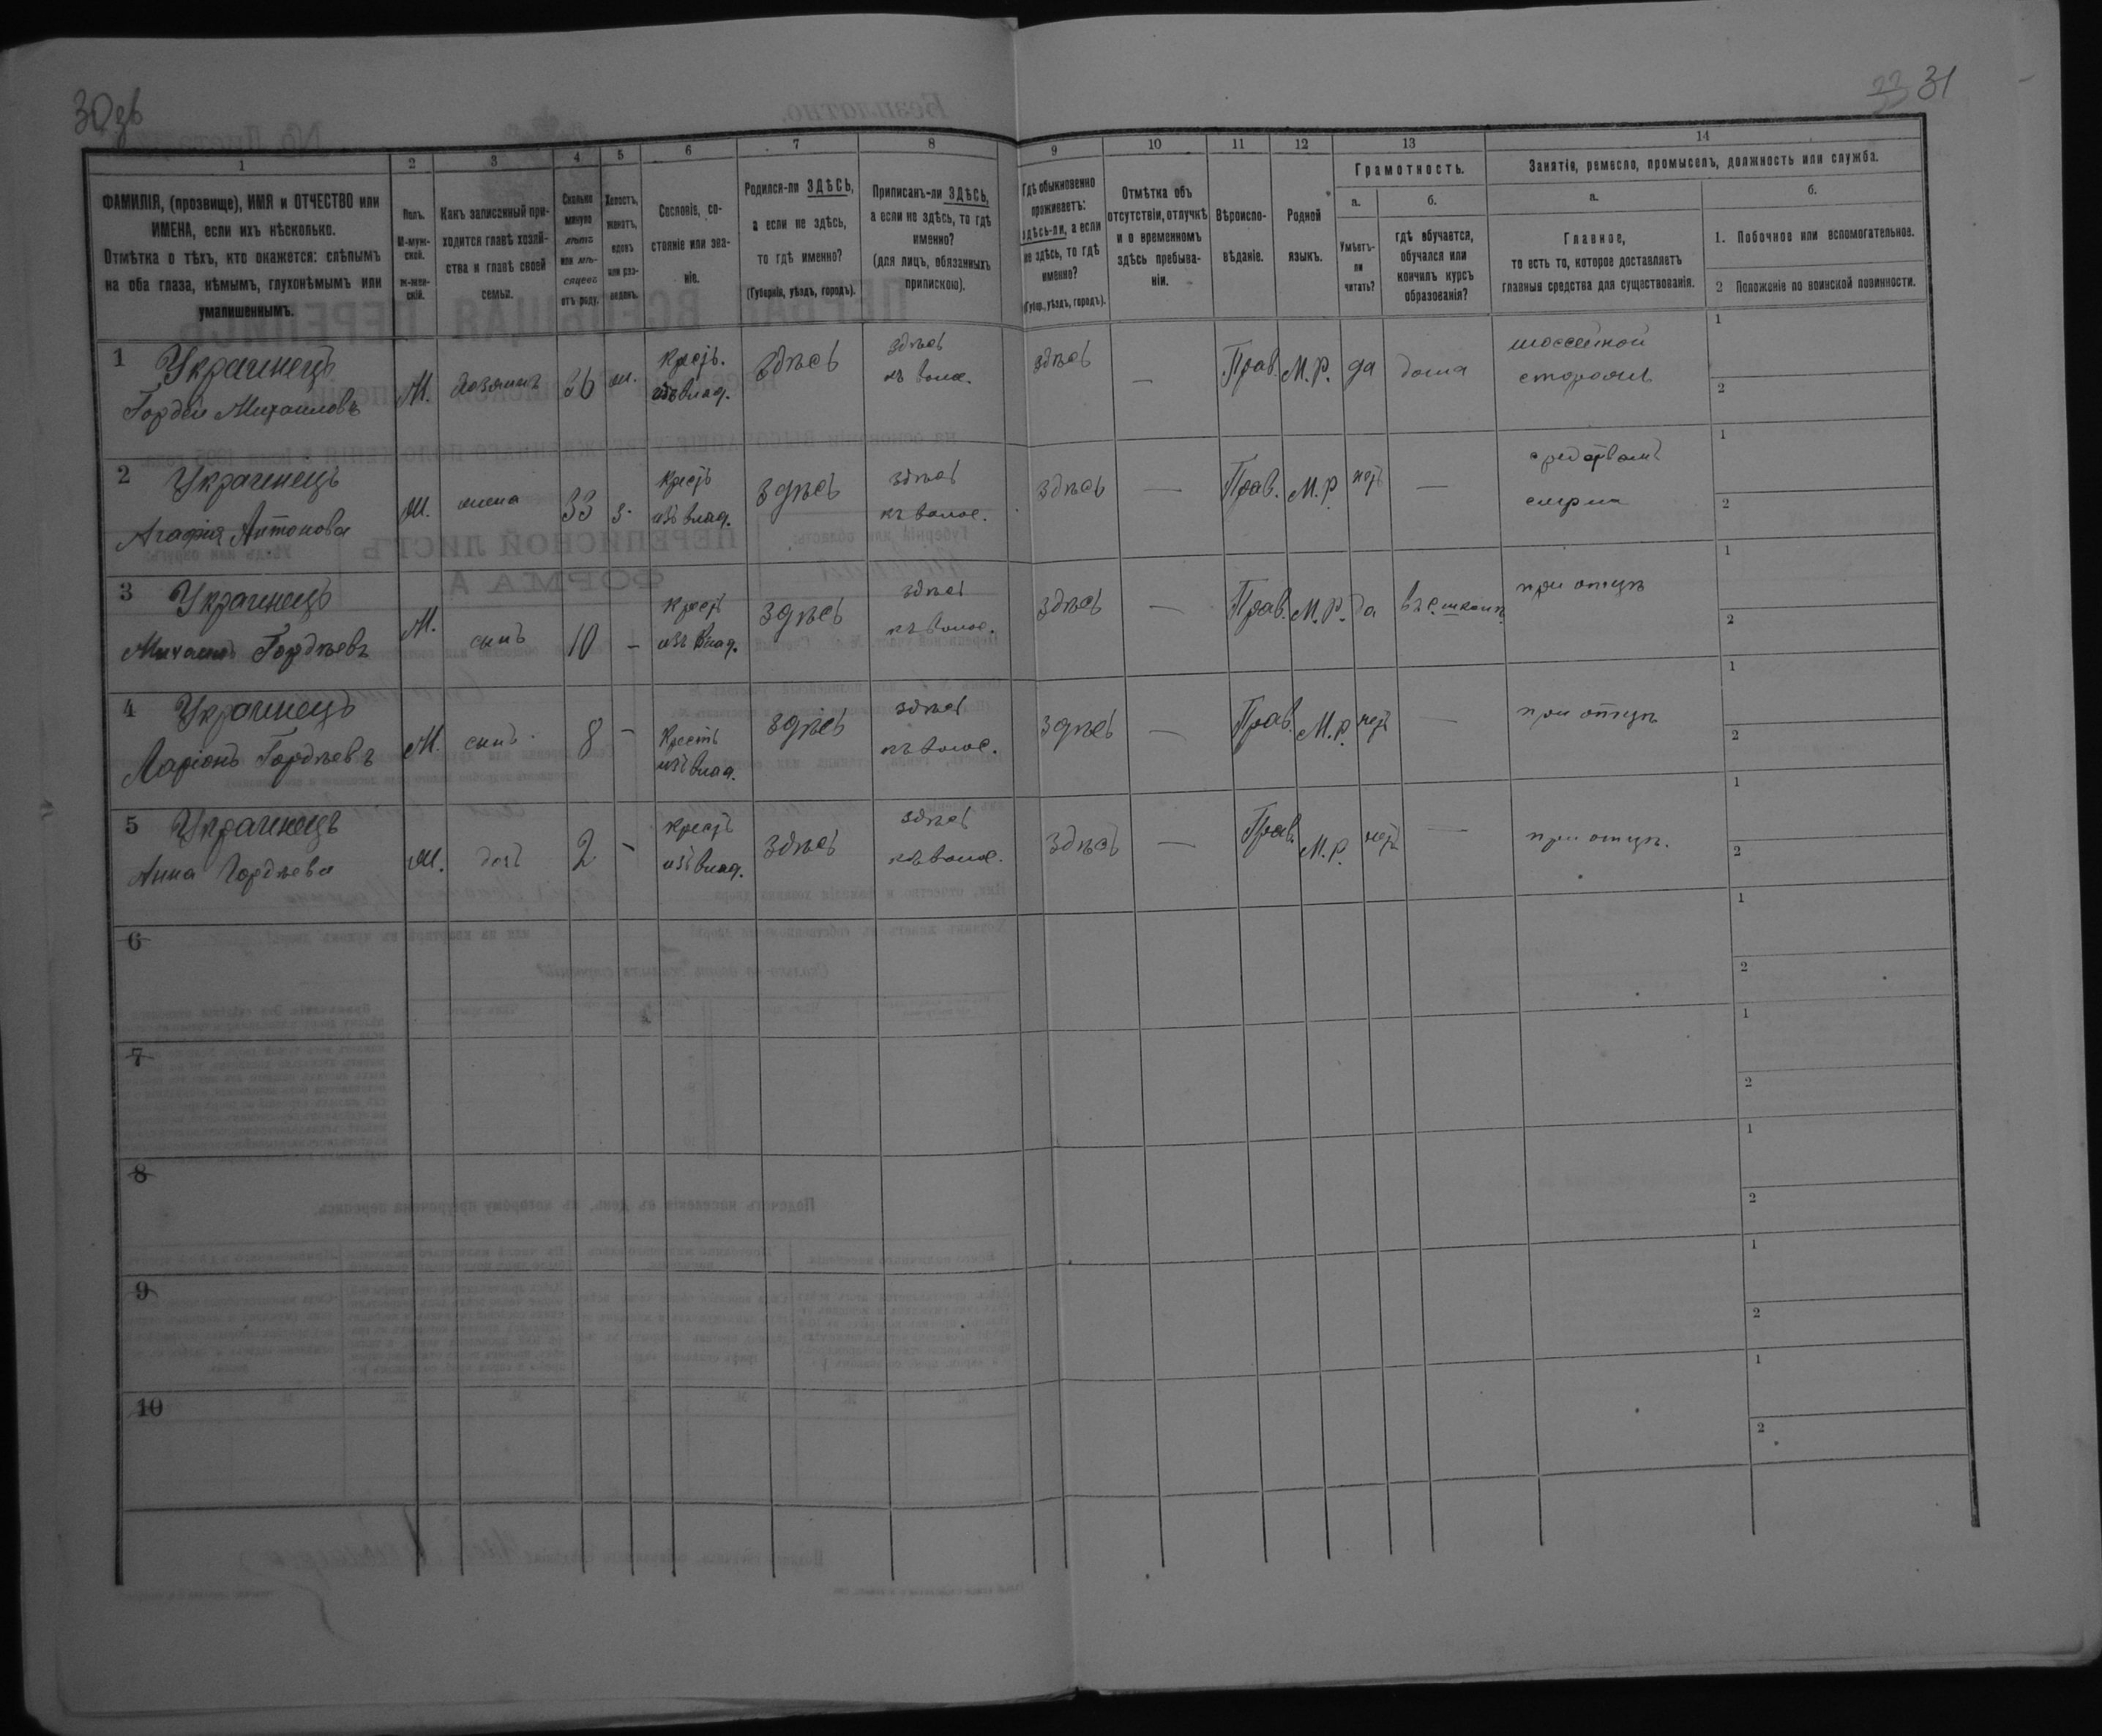 30 зв
22 31
1
2
3
4
5
6
7
8
9
10
11
12
13
14
ФАМИЛІЯ, (прозвище), ИМЯ и ОТЧЕСТВО или
ИМЕНА, если ихъ нѣсколько.
Отмѣтка о тѣхъ, кто окажется: слѣпымъ
на оба глаза, нѣмымъ, глухонѣмымъ или
умалишеннымъ.
Полъ.
М-муж-
ской.
Ж-жен-
скій.
Какъ записанный при-
ходится главѣ хозяй-
ства и главѣ своей
семьи.
Сколько
минуло
лѣтъ
или мѣ-
сяцевъ
отъ роду.
Холостъ,
женатъ,
вдовъ
или раз-
веденъ.
Сословіе, со-
стояніе или зва-
ніе.
Родился-ли ЗДѢСЬ,
а если не здѣсь,
то гдѣ именно?
(Губернія, уѣздъ, городъ).
Приписанъ-ли ЗДѢСЬ,
а если не здѣсь, то гдѣ
именно?
(для лицъ, обязанныхъ
припискою).
Гдѣ обыкновенно
проживаетъ:
здѣсь-ли, а если
не здѣсь, то гдѣ
именно?
(Губер., уѣздъ, городъ).
Отмѣтка объ
отсутствіи, отлучкѣ
и о временномъ
здѣсь пребыва-
ніи.
Вѣроиспо-
вѣданіе.
Родной
языкъ.
Грамотность.
а.
Умѣетъ-
ли
читать?
б.
гдѣ обучается,
обучался или
кончилъ курсъ
образованія?
Занятія, ремесло, промыселъ, должность или служба.
а.
Главное,
то есть то, которое доставляетъ
главныя средства для существованія.
б.
1. Побочное или вспомогательное.
2 Положеніе по воинской повинности.
1 Украинецъ
Гордѣй Михаиловъ
М.
хозяинъ
36
ж.
Крест.
изъ влад.
здѣсь
здѣсь
къ волос.
здѣсь
—
Прав.
М.Р.
да
дома
шоссейной
сторожъ
1
2
2 Украинецъ
Агафія Антонова
Ж.
жена
33
з.
Крест
изъ влад.
здѣсь
здѣсь
къ волос.
здѣсь
—
Прав.
М.Р.
нет
—
1
2
3 Украинецъ
Михаилъ Гордѣевъ
М.
сынъ
10
—
Крест
изъ влад.
здѣсь
здѣсь
къ волос.
здѣсь
—
Прав.
М.Р.
да
въ с. школѣ
при отцѣ
1
2
4 Украинецъ
Ларіонъ Гордѣевъ
М.
сынъ
8
—
Крестъ
изъ влад.
здѣсь
здѣсь
къ волос.
здѣсь
—
Прав.
М.Р.
нет
—
при отцѣ
1
2
5 Украинецъ
Анна Гордѣева
Ж.
доч
2
—
Крест
изъ влад.
здѣсь
здѣсь
къ волос.
здѣсь
—
Прав.
М.Р.
нет
—
при отцѣ.
1
2
6
1
2
7
1
2
8
1
2
9
1
2
10
1
2